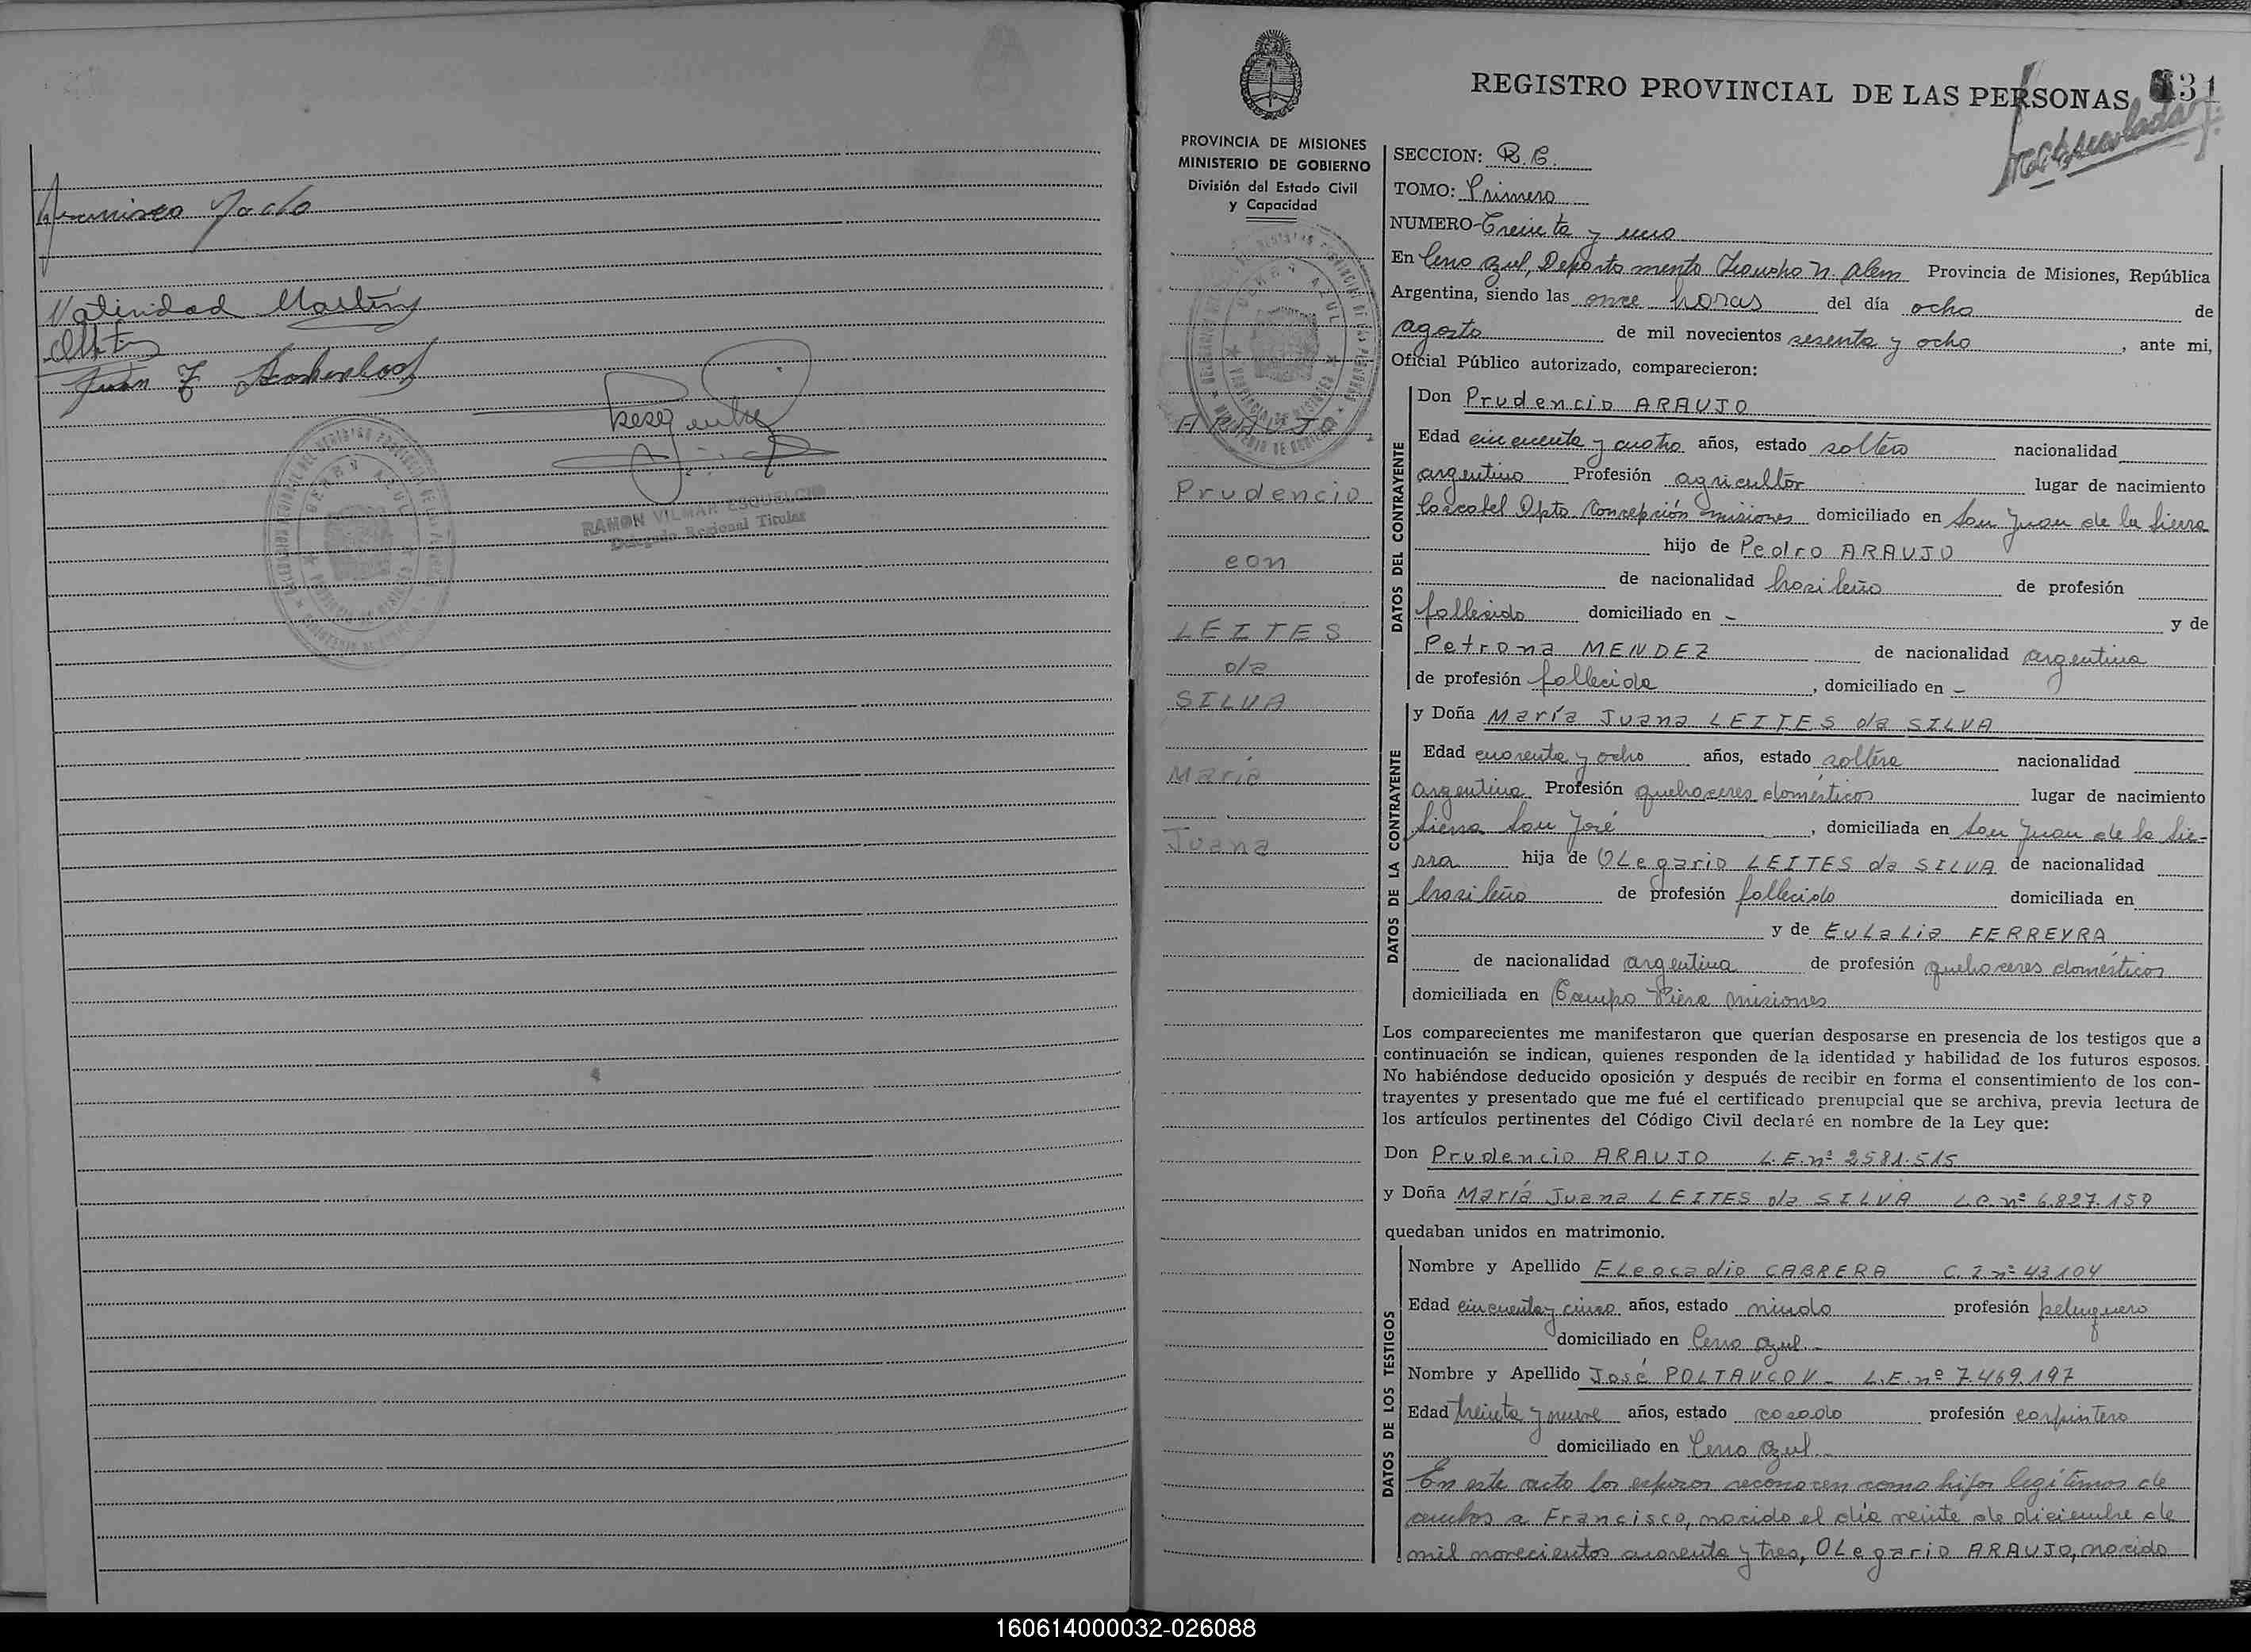 Francisco
Natividad Martínez
Juan F
CERRO AZUL
RAMON VILMAR ESQUELCIO
Delegado Regional Titular
REGISTRO PROVINCIAL DE LAS PERSONAS
31
PROVINCIA DE MISIONES
MINISTERIO DE GOBIERNO
División del Estado Civil
y Capacidad
CERRO AZUL
ARAUJO
Prudencio
con
LEITES
da
SILVA
María
Juana
SECCION: R. C.
TOMO: Primero
NUMERO- Treinta y uno
En Cerro Azul, Departamento Leandro N. Alem Provincia de Misiones, República
Argentina, siendo las once horas del día ocho de
agosto de mil novecientos sesenta y ocho, ante mi,
Oficial Público autorizado, comparecieron:
DATOS DEL CONTRAYENTE
Don Prudencio ARAUJO
Edad cincuenta y cuatro años, estado soltero nacionalidad
argentino Profesión agricultor lugar de nacimiento
Dpto. Concepción Misiones domiciliado en San Juan de la Sierra
hijo de Pedro ARAUJO
de nacionalidad brasileño de profesión
fallecido domiciliado en - y de
Petrona MENDEZ de nacionalidad argentina
de profesión fallecida, domiciliado en -
DATOS DE LA CONTRAYENTE
y Doña María Juana LEITES da SILVA
Edad cuarenta y ocho años, estado soltera nacionalidad
argentina Profesión quehaceres domésticos lugar de nacimiento
Sierra San José, domiciliada en San Juan de la Sie-
rra hija de OLegario LEITES da SILVA de nacionalidad
brasileño de profesión fallecido domiciliada en
y de EuLaLia FERREYRA
de nacionalidad argentina de profesión quehaceres domésticos
domiciliada en Campo Viera Misiones
Los comparecientes me manifestaron que querían desposarse en presencia de los testigos que a
continuación se indican, quienes responden de la identidad y habilidad de los futuros esposos.
No habiéndose deducido oposición y después de recibir en forma el consentimiento de los con-
trayentes y presentado que me fué el certificado prenupcial que se archiva, previa lectura de
los artículos pertinentes del Código Civil declaré en nombre de la Ley que:
Don Prudencio ARAUJO L.E. nº 2581.515
y Doña María Juana LEITES da SILVA L.C. nº 6.827.159
quedaban unidos en matrimonio.
DATOS DE LOS TESTIGOS
Nombre y Apellido ELeocadio CABRERA C. I. nº 43104
Edad cincuenta y cinco años, estado viudo profesión peluquero
domiciliado en Cerro Azul.-
Nombre y Apellido José POLTAVCOV - L.E. nº 7.469.197
Edad treinta y nueve años, estado casado profesión carpintero
domiciliado en Cerro Azul.-
En este acto los esposos reconocen como hijos legítimos de
ambos a Francisco, nacido el día veinte de diciembre de
mil novecientos cuarenta y tres, OLegario ARAUJO, nacido
160614000032-026088